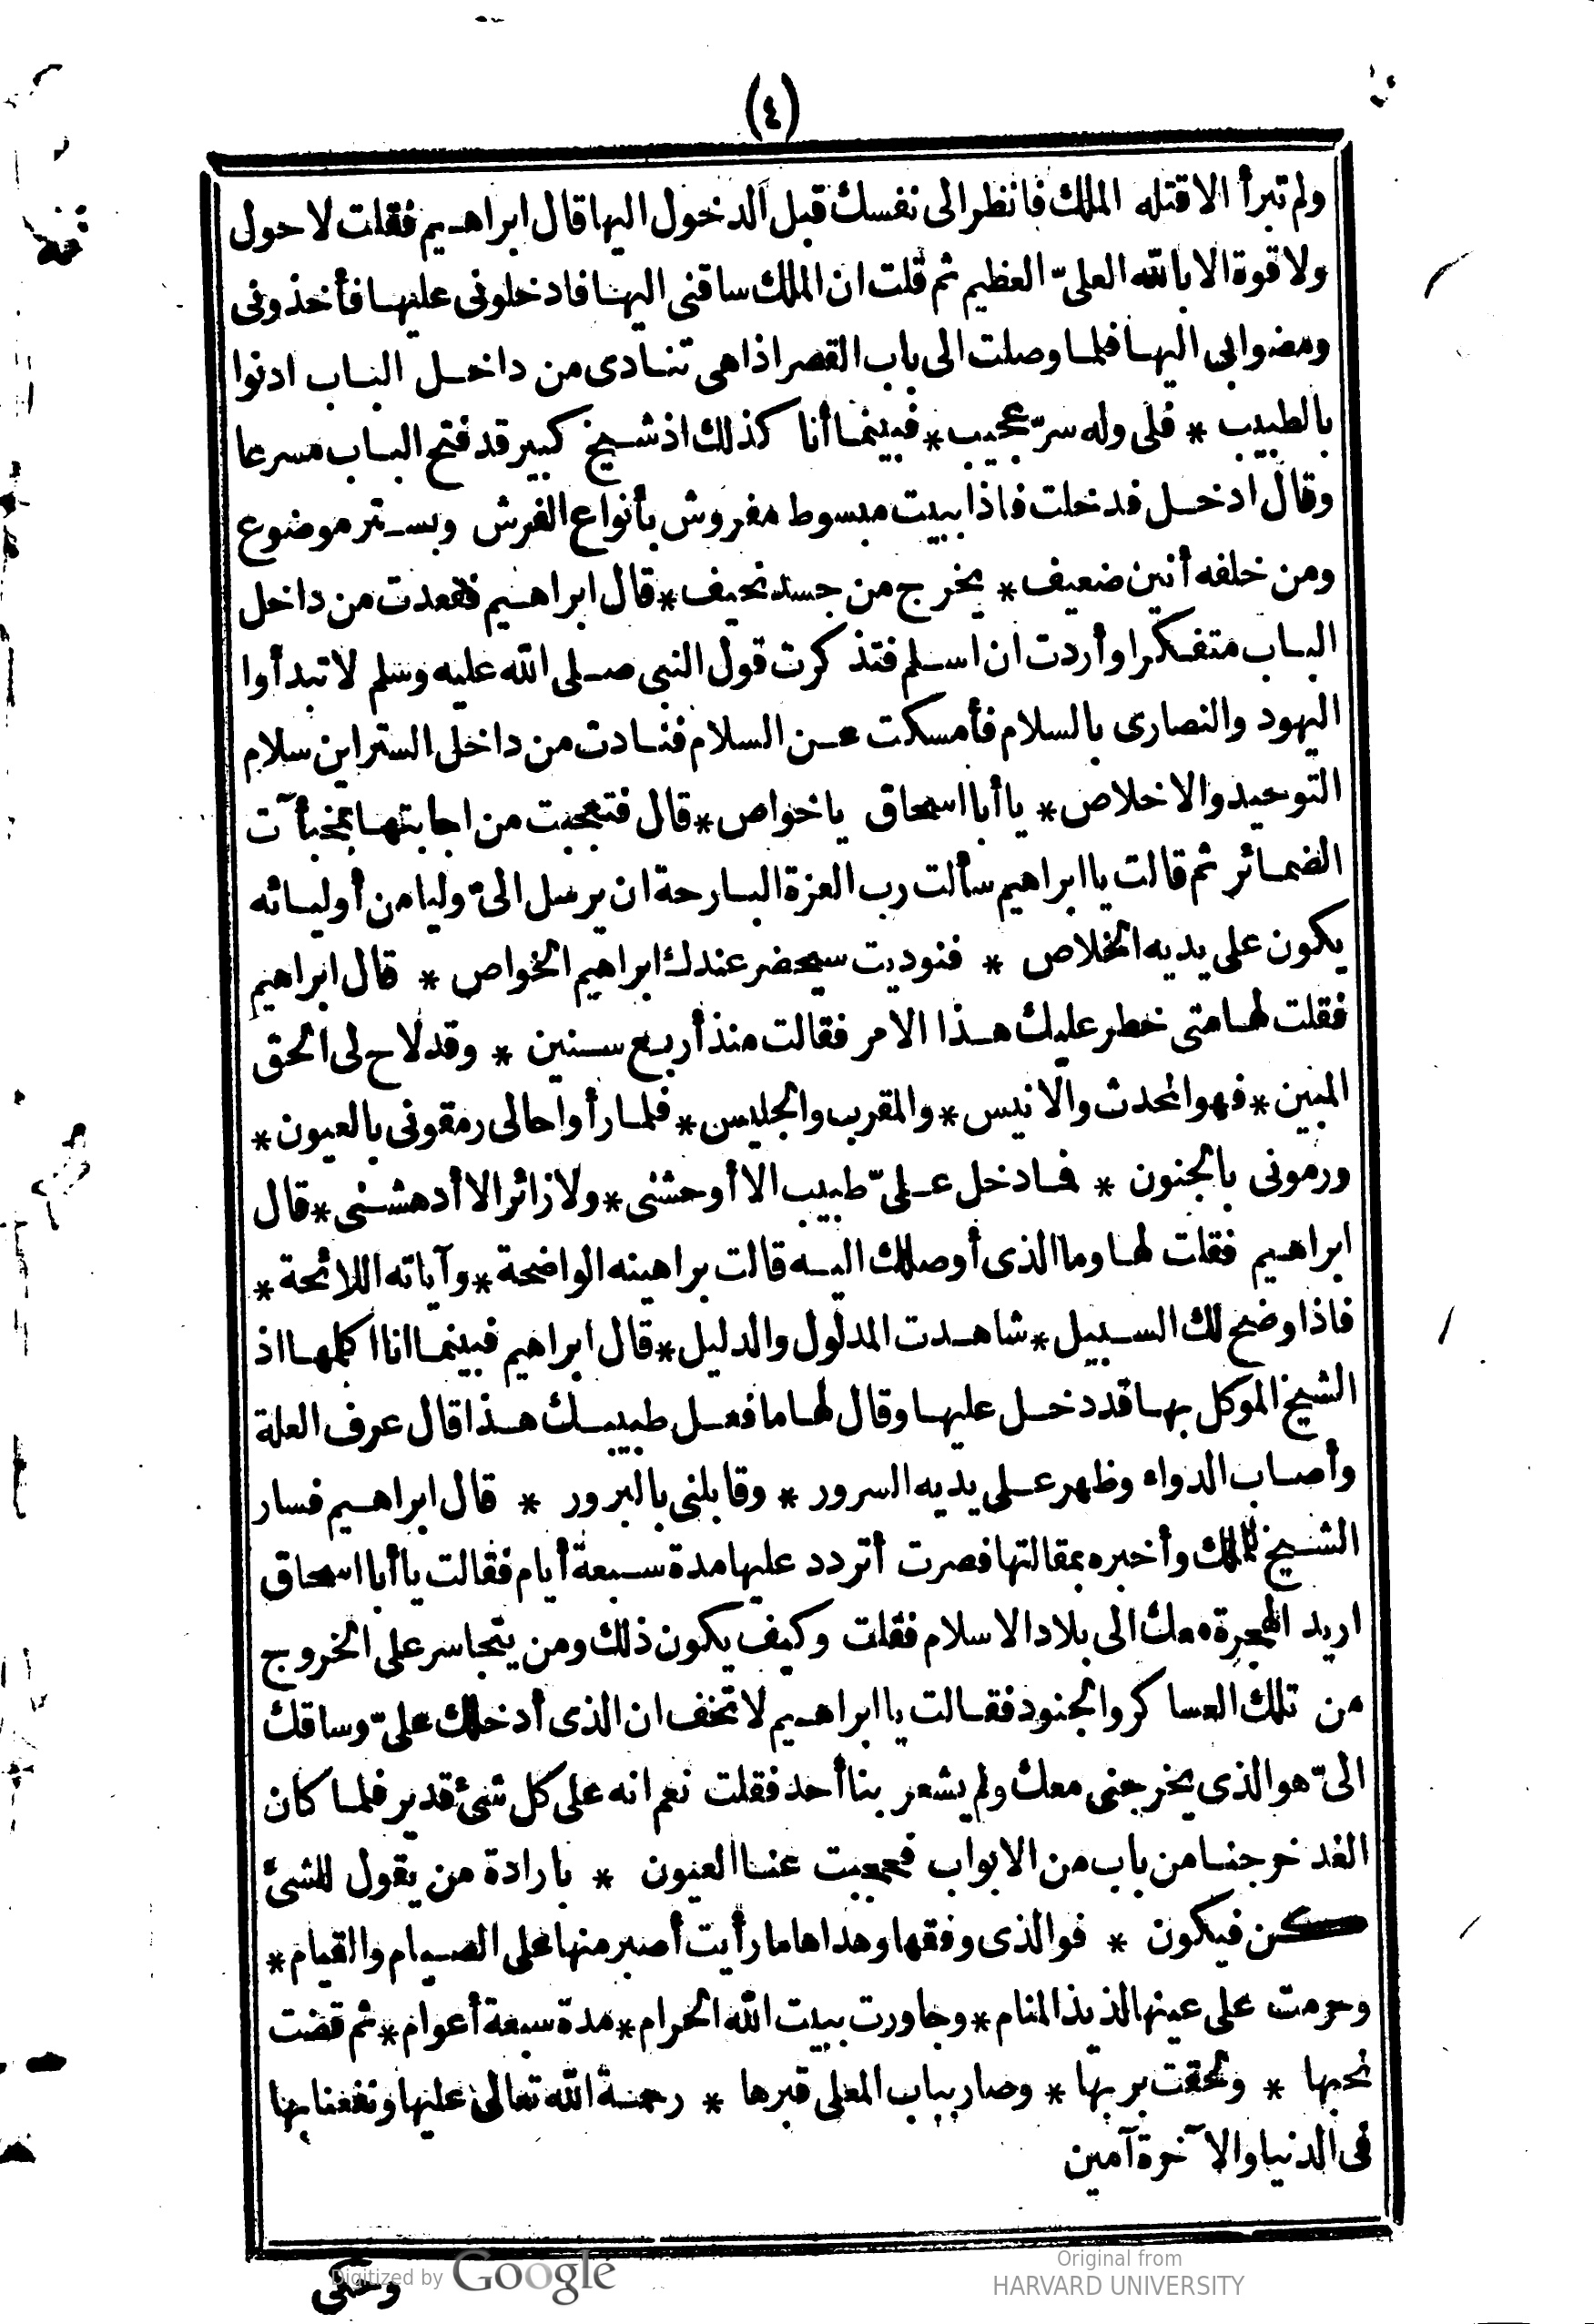 (٤)
ولم تبرأ الا قتله الملك فانظر الى نفسك قبل الدخول اليها قال ابراهيم فقلت لا حول
ولا قوة الا بالله العلىّ العظيم ثم قلت ان الملك ساقنى اليها فادخلونى عليها فأخذونى
ومضوا بى اليها فلما وصلت الى باب القصر اذا هى تنادى من داخل الباب ادنوا
بالطبيب * فلى وله سرّ عجيب * فبينما أنا كذلك اذ شيخ كبير قد فتح الباب مسرعا
وقال ادخل فدخلت فاذا بيت مبسوط مفروش بأنواع الفرش وبستر موضوع
ومن خلفه أنين ضعيف * يخرج من جسد نحيف * قال ابراهيم فقعدت من داخل
الباب متفكرا وأردت ان اسلم فتذكرت قول النبى صلى الله عليه وسلم لا تبدأوا
اليهود والنصارى بالسلام فأمسكت عن السلام فنادت من داخل الستر اين سلام
التوحيد والاخلاص * يا أبا اسحاق يا خواص * قال فتعجبت من اجابتها بمخبآت
الضمائر ثم قالت يا ابراهيم سألت رب العزة البارحة ان يرسل الىّ وليا من أوليائه
يكون على يديه الخلاص * فنوديت سيحضر عندك ابراهيم الخواص * قال ابراهيم
فقلت لها متى خطر عليك هذا الامر فقالت منذ أربع سنين * وقد لاح لى الحق
المبين * فهو المحدث والانيس * والمقرب والجليس * فلما رأوا حالى رمقونى بالعيون *
ورمونى بالجنون * فما دخل علىّ طبيب الا أوحشنى * ولا زائر الا أدهشنى * قال
ابراهيم فقلت لها وما الذى أوصلك اليه قالت براهينه الواضحة * وآياته اللائحة *
فاذا وضح لك السبيل * شاهدت المدلول والدليل * قال ابراهيم فبينما انا اكلمها اذ
الشيخ الموكل بها قد دخل عليها وقال لها ما فعل طبيبك هذا قال عرف العلة
وأصاب الدواء وظهر على يديه السرور * وقابلنى بالبرور * قال ابراهيم فسار
الشيخ للملك وأخبره بمقالتها فصرت أتردد عليها مدة سبعة أيام فقالت يا أبا اسحاق
اريد الهجرة معك الى بلاد الاسلام فقلت وكيف يكون ذلك ومن يتجاسر على الخروج
من تلك العساكر والجنود فقالت يا ابراهيم لا تخف ان الذى أدخلك علىّ وساقك
الىّ هو الذى يخرجنى معك ولم يشعر بنا أحد فقلت نعم انه على كل شئ قدير فلما كان
الغد خرجنا من باب من الابواب فحجبت عنا العيون * بارادة من يقول للشئ
كن فيكون * فوالذى وفقها وهداها ما رأيت أصبر منها على الصيام والقيام *
وحرمت على عينها لذيذ المنام * وجاورت بيت الله الحرام * مدة سبعة أعوام * ثم قضت
نحبها * ولحقت بربها * وصار بباب المعلى قبرها * رحمة الله تعالى عليها ونفعنا بها
فى الدنيا والآخرة آمين
وحكى
Digitized by Google
Original from
HARVARD UNIVERSITY